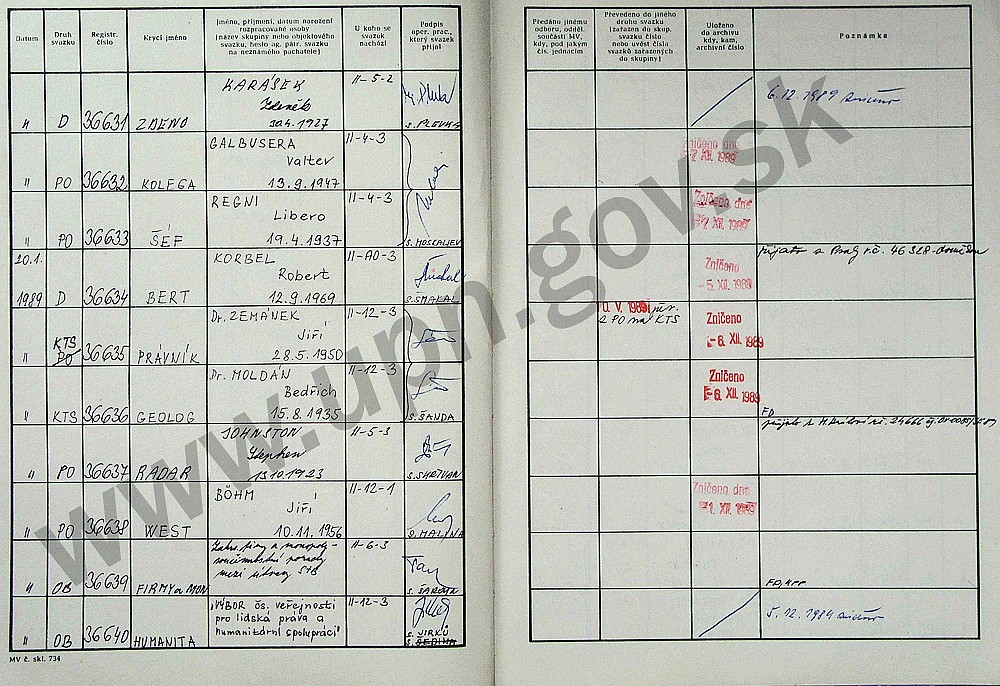 Datum
Druh svazku
Registr. číslo
Krycí jméno
Jméno, příjmení, datum narození
rozpracované osoby
(název skupiny nebo objektového
svazku, heslo ag. pátr. svazku
na neznámého pachatele)
U koho se
svazek
nachází
Podpis
oper. prac.,
který svazek
přijal
Předáno jinému
odboru, odděl.
součásti MV,
kdy, pod jakým
čís. jednacím
Převedeno do jiného
druhu svazku
(zařazen do skup.
svazku číslo
nebo uvést čísla
svazků zařazených
do skupiny)
Uloženo
do archivu
kdy, kam,
archivní číslo
Poznámka
KARÁŠEK II-5-2
Zdeněk
" D 36631 ZDENO 30.4.1927 S. PLEVKA
6.12.1989
GALBUSERA II-4-3
Valter
" PO 36632 KOLEGA 13.9.1947
Zničeno dne
XII. 1989
REGNI II-4-3
Libero
" PO 36633 ŠÉF 19.4.1937 S. MOSKALJEV
Zničeno dne
XII. 1989
20.1. KORBEL II-90-3
Robert
1989 D 36634 BERT 12.9.1969 S. ŠMAKAL
Zničeno
-5. XII. 1989
přijato z Prahy r.č. 46328
Dr. ZEMÁNEK II-12-3
KTS Jiří
" PO 36635 PRÁVNÍK 28.5.1950
0. V. 1989
z PO na KTS
Zničeno
-6. XII. 1989
Dr. MOLDÁN II-12-3
Bedřich
" KTS 36636 GEOLOG 15.8.1935 S. ŠANDA
Zničeno
-6. XII. 1989
FD
JOHNSTON II-5-3
Stephen
" PO 36637 RADAR 13.10.1923
24666
BÖHM II-12-1
Jiří
" PO 36638 WEST 10.11.1956 S. MALINA
Zničeno dne
-1. XII. 1989
Zahr. firmy a monopoly - II-6-3
mezi
" OB 36639 FIRMY a MON
FD, KPP
"VÝBOR čs. veřejnosti II-12-3
pro lidská práva a
humanitární spolupráci"
" OB 36640 HUMANITA S. JIRKŮ
5.12.1989
MV č. skl. 734
www.upn.gov.sk